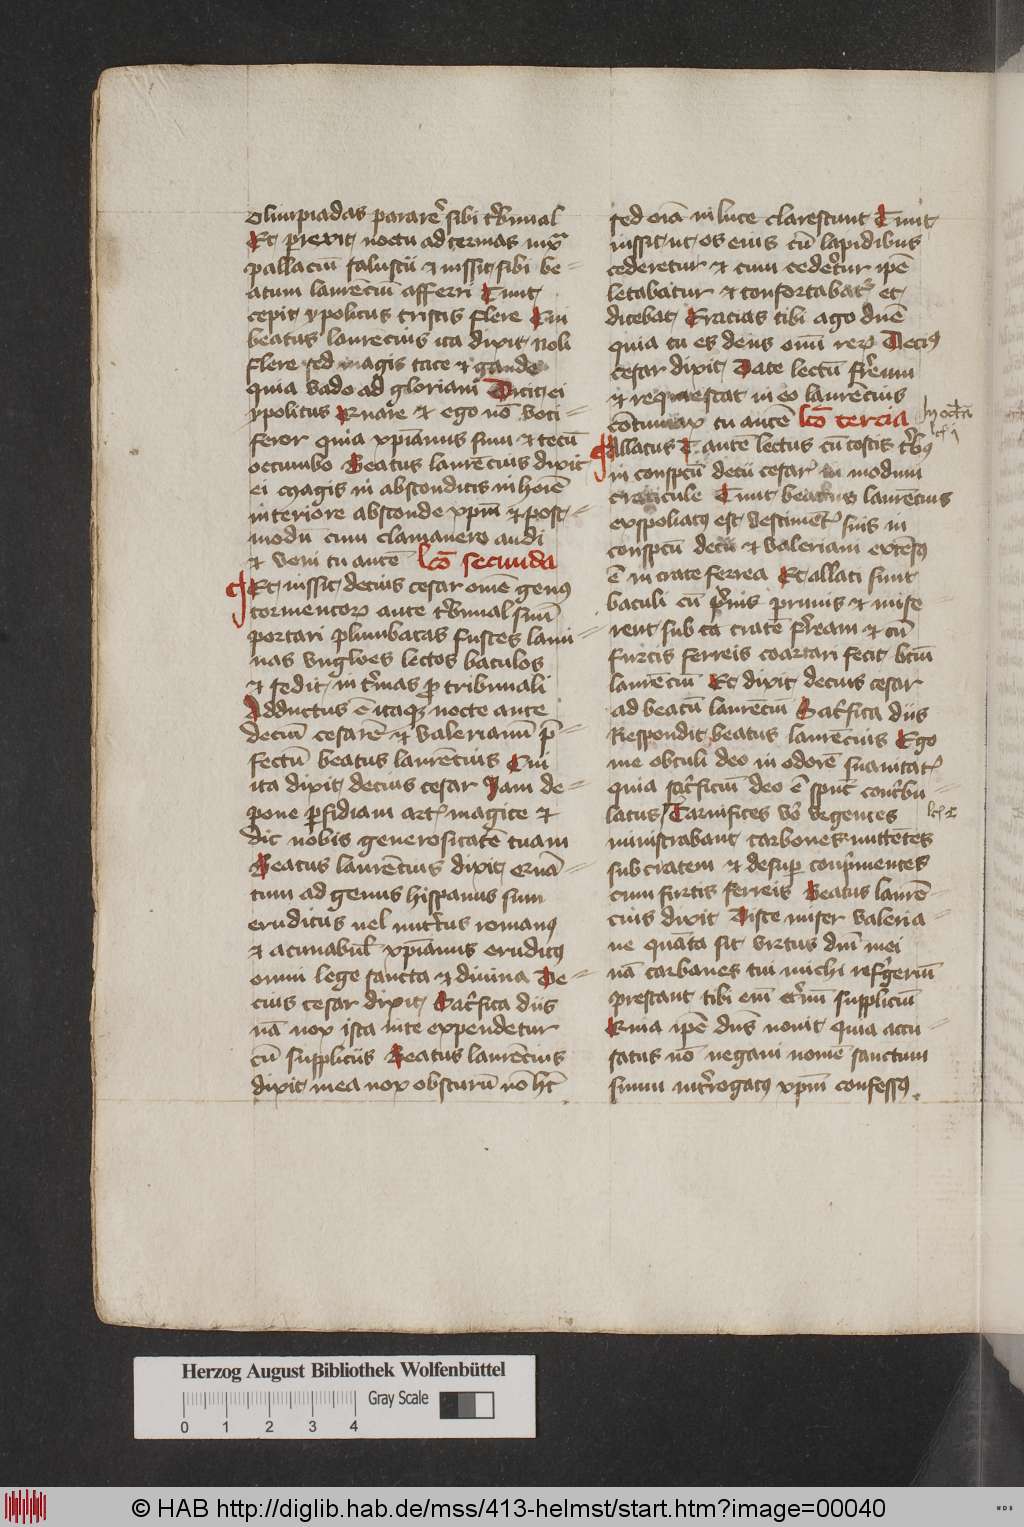 olimpiadas pararē sibi tͬbunal
Et perexit noctu ad termas iuxͣ
pallaciū salustii et iussit sibi be=
atum laurenciū afferri Tunc
cepit ypolitus tristis flere Cui
beatus laurencius ita dixit noli
flere sed magis tace et gaude
quia vado ad gloriam Dicit ei
ypolitus Quare et ego nō voci=
feror quia xp̄ianus sum et tecū
occumbo Beatus laurēcius dixit
ei magis in absconditis in hoīē
interiore absconde xpm̄ et post=
modū cum clamauero audi
et veni tu autē lc̄o secunda
Et iussit decius cesar omē genus
tormentorꝝ ante tͬbunal suū
portari plumbatas fustes lami=
nas vngloes lectos baculos
et sedit in tͬmas ꝓ tribunali
Adductus ē itaqꝫ nocte ante
deciū cesarē et valerianū p̄=
fectū beatus laurēcius Cui
ita dixit decius cesar Jam de=
pone ꝑfidiam artꝭ magice et
dic nobis generositatē tuam
Beatus laurēcius dixit quā=
tum ad genus hispanus sum
eruditus uel nutͥtus romanꝰ
et acunabul̄ xp̄ianus eruditꝰ
omni lege sancta et diuina De=
cius cesar dixit Sacͥfica diis
nā nox ista in te expendetur
cū suppliciis Beatus laurēcius
dixit mea nox obscurū nō hꝫ
sed oīa in luce clarescunt Tunc
iussit ut os eius cū lapidibus
cederetur et cum cederetur ipē
letabatur et confortabatꝰ et
dicebat Gracias tibi ago dn̄e
quia tu es deus omī rerꝝ Deciꝰ
cesar dixit Date lectū fͬreum
et requiescat in eo laurēcius
cōtumax tu autē lc̄o tercia
In octͣua
lc̄ j
Allatus ē autē lectus cū costis tͬbꝰ
in conspectū decii cesarꝭ in modum
craticule Tunc beatus laurēcius
exspoliatꝰ est vestimentꝭ suis in
conspectū decii et valeriani extēsꝰ
ē in crate ferrea Et allati sunt
baculi cū pͬnis prunis et mise
rent sub ea cratē fͬream et cū
furcis ferreis coartari fecit btū
laurēciū Et dixit decius cesar
ad beatū laurēciū Sacͥfica diis
Respondit beatus laurēcius Ego
me obtuli deo in odorē suauitatꝭ
quia sacͥficiū deo ē spūs contͬbu=
latus Carnifices vō vrgentes
lc̄ 2
ministrabant carbones mittētes
sub cratem et desuꝑ conpͥmentes
cum furcis ferreis Beatus laurē=
cius dixit Disce miser valeria=
ne quāta sit virtus dn̄i mei
nā carbones tui michi refͥgeriū
prestant tibi em̄ etͬnū suppliciū
Quia ipē dn̄s nouit quia accu=
satus nō negaui nomē sanctum
suum intͬrogatꝰ xp̄m confessꝰ
Herzog August Bibliothek Wolfenbüttel
Gray Scale
0 1 2 3 4
© HAB http://diglib.hab.de/mss/413-helmst/start.htm?image=00040